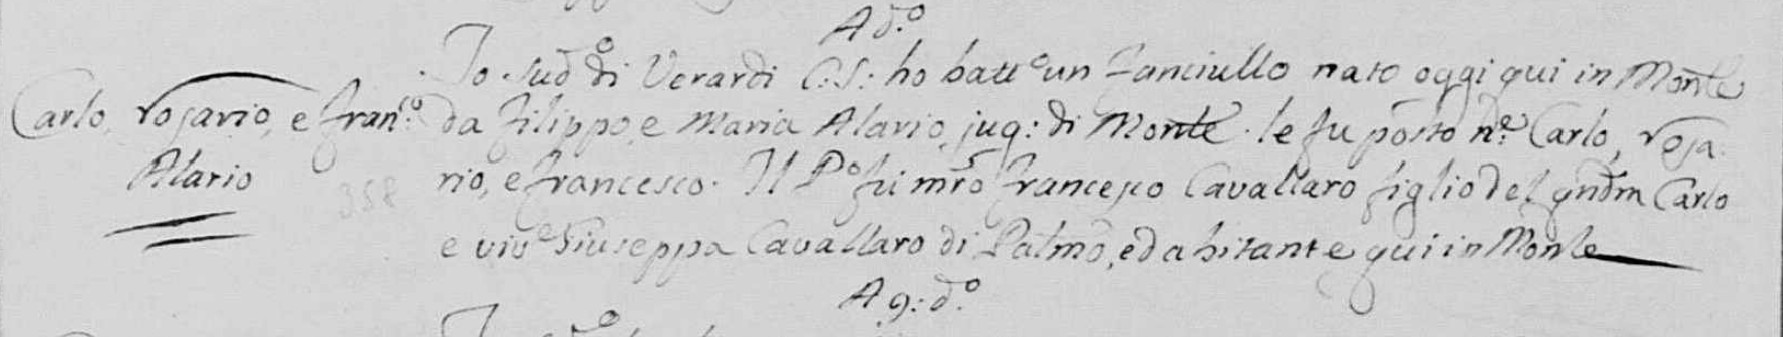 A d.º
Carlo, rosario, e fran.co
Alario
Io Sud.º di Verardi C: S: ho batt.º un fanciullo nato oggi qui in Monte
da Filippo, e Maria Alario, jug: di Monte. le fu posto n.e Carlo, rosa-
rio, e francesco. Il P.º fu mrõ francesco Cavallaro figlio del qndm Carlo
e viv.e Giuseppa Cavallaro di Palmo, ed abitante qui in Monte
A 9: d.º